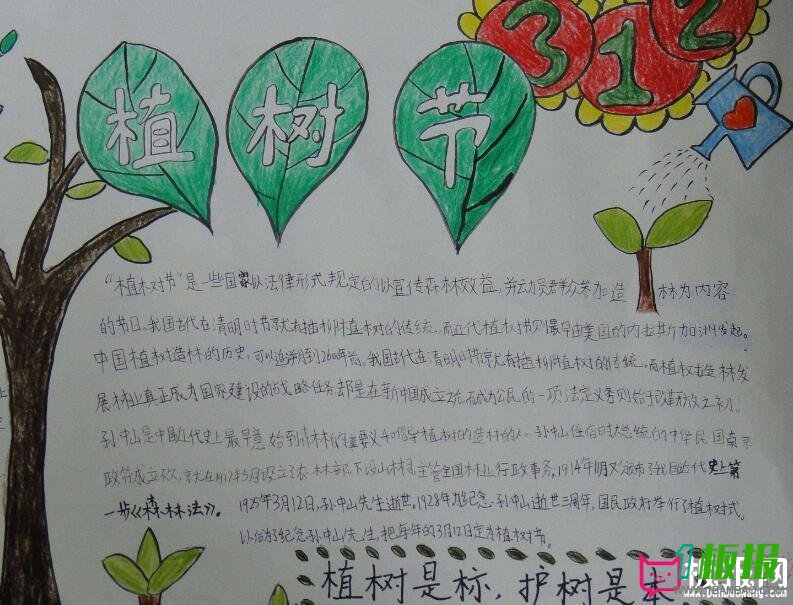 植树节
312
"植树节"是一些国家以法律形式规定的以宣传森林效益,并动员群众参加造林为内容
的节日。我国古代在清明时节就有插柳植树的传统,而近代植树节则最早由美国的内布拉斯加州发起。
中国植树造林的历史,可以追溯到2600年前。我国古代在清明时节就有插柳植树的传统,而植树造林发
展林业真正成为国家建设的战略任务却是在新中国成立之后,成为公民的一项法定义务则始于改革开放之初。
孙中山是中国近代史上最早意始到森林的重要义和倡导植树的造林的人。孙中山任临时大总统的中华民国南京
政府成立后,就在1912年5月设立了农林部,下设山林司,主管全国林业行政事务,1914年11月又颁布了我国近代史上第
一步《森林法》。 1925年3月12日,孙中山先生逝世。1928年为纪念孙中山逝世三周年,国民政府举行了植树式。
以后为了纪念孙中山先生,把每年的3月12日定为植树节。
植树是标,护树是本
板报网